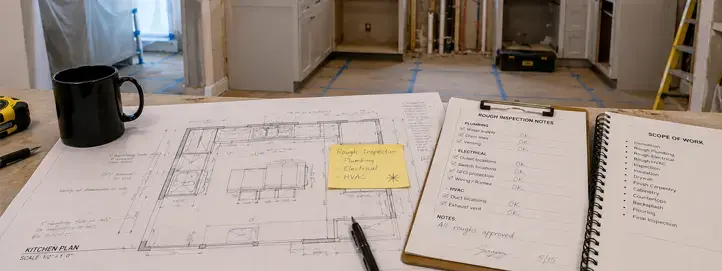 Rough Inspection
- Plumbing
- Electrical
- HVAC
KITCHEN PLAN
SCALE: 1/2" = 1'-0"
ROUGH INSPECTION NOTES
PLUMBING
Water supply OK
Drain lines OK
Venting OK
ELECTRICAL
Outlet locations OK
Switch locations OK
GFCI protection OK
Wiring / Romex OK
HVAC
Duct locations OK
Exhaust vent OK
NOTES:
All roughs approved
5/15
SCOPE OF WORK
Demolition
Rough Plumbing
Rough Electrical
Rough HVAC
Inspection
Insulation
Drywall
Finish Carpentry
Cabinetry
Countertops
Backsplash
Flooring
Final Inspection